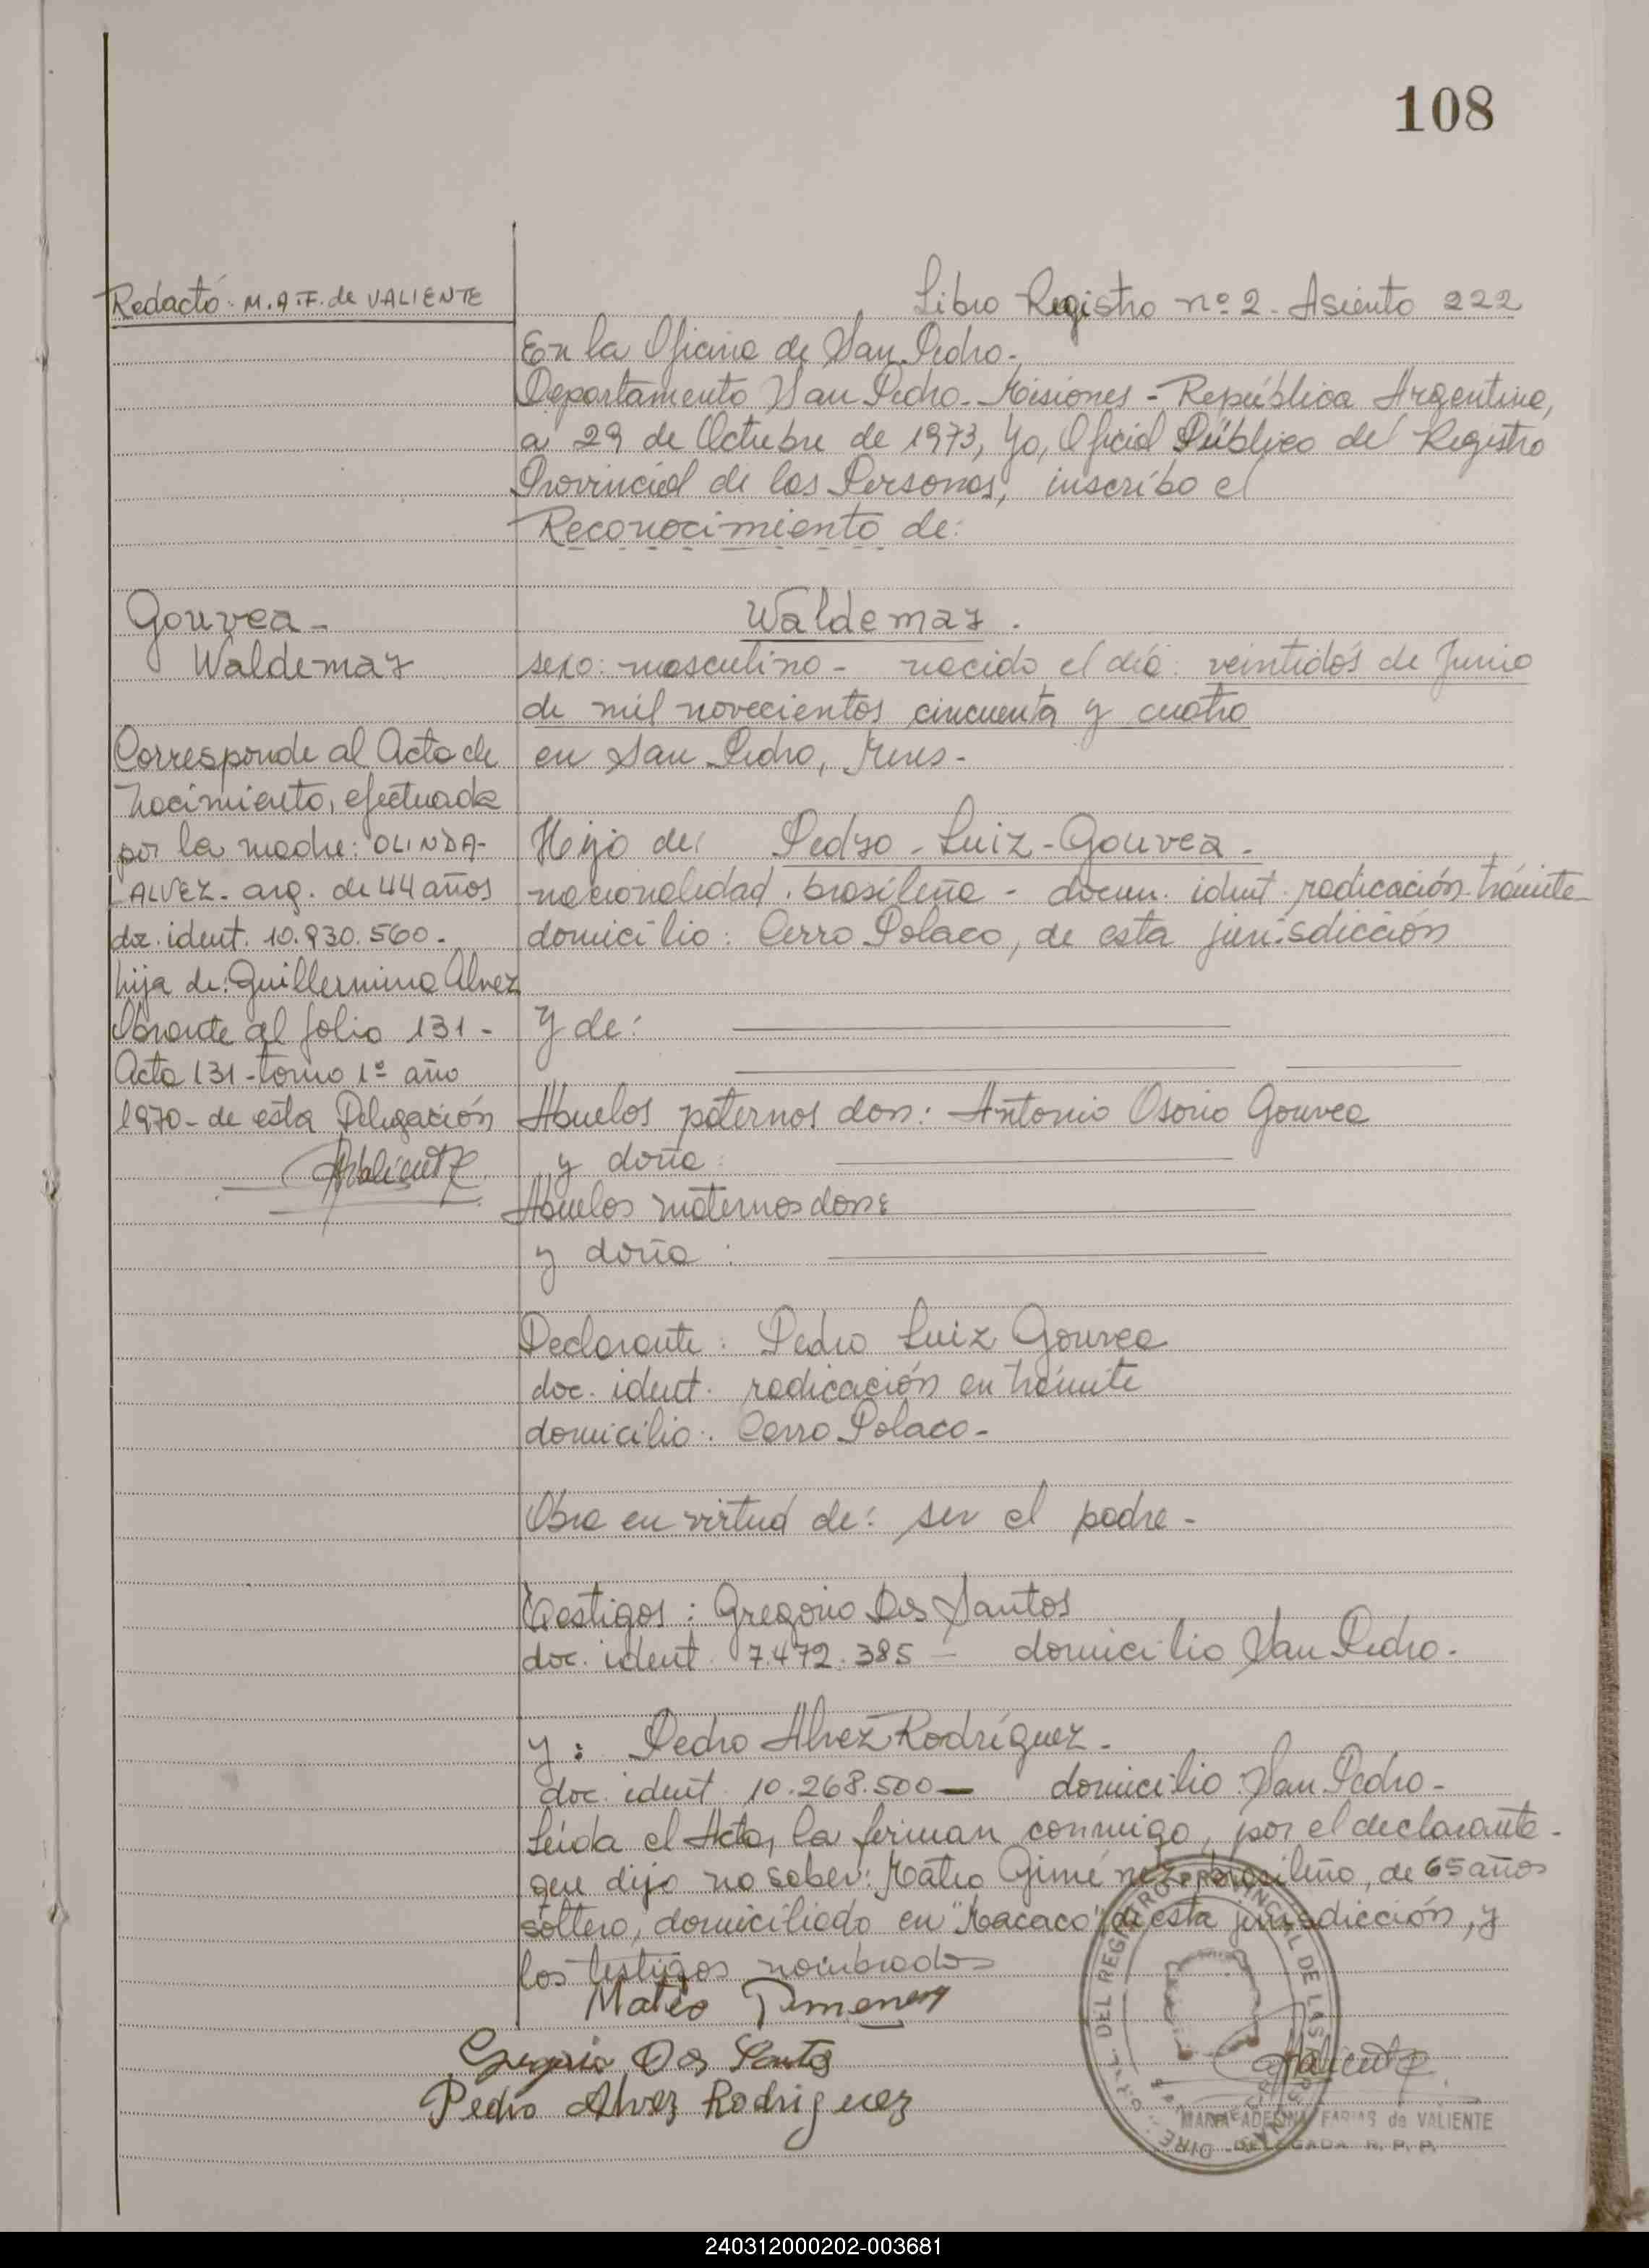 108
Redactó: M.A.F. de VALIENTE
Libro Registro nº 2 - Asiento 222
En la Oficina de San Pedro -
Departamento San Pedro - Misiones - República Argentina,
a 29 de Octubre de 1973, Yo, Oficial Público del Registro
Provincial de las Personas, inscribo el
Reconocimiento de:
Gouvea -
Waldemar
Waldemar.
sexo: masculino - nacido el día: veintidós de Junio
de mil novecientos cincuenta y cuatro
en San Pedro, Mnes -
Corresponde al Acta de
nacimiento, efectuada
por la madre: OLINDA -
ALVEZ - arg. de 44 años
doc. ident. 10.930.560 -
hija de: Guillermina Alvez
Obrante al folio 131 -
Acta 131 - tomo 1º año
1970 - de esta Delegación
Hijo de: Pedro - Luiz - Gouvea -
nacionalidad brasileña - docum. ident. radicación trámite -
domicilio: Cerro Polaco, de esta jurisdicción
Y de:
Abuelos paternos don: Antonio Osorio Gouvea
y doña:
Abuelos maternos don:
y doña:
Declarante: Pedro Luiz Gouvea
doc. ident. radicación en trámite
domicilio: Cerro Polaco -
Obra en virtud de: ser el padre -
Testigos: Gregorio Dos Santos
doc. ident. 7.472.385 - domicilio San Pedro -
y: Pedro Alvez Rodríguez -
doc. ident. 10.268.500 - domicilio San Pedro -
Leída el Acta, la firman conmigo, por el declarante -
que dijo no saber: Mateo Giménez, brasileño, de 65 años
soltero, domiciliado en "Macaco" de esta jurisdicción, y
los testigos nombrados
Mateo Jimenez
Gregorio Dos Santos
Pedro Alvez Rodriguez
DEL REGISTRO PROVINCIAL DE LAS
MARIA ADELINA FARIAS de VALIENTE
DELEGADA R. P. P.
240312000202-003681